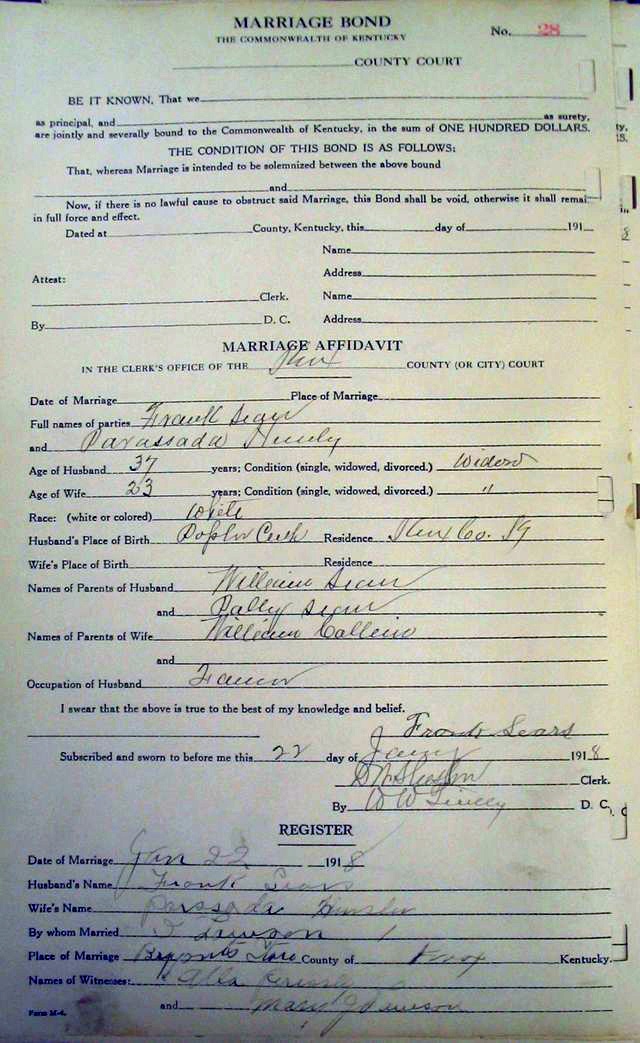 MARRIAGE BOND
THE COMMONWEALTH OF KENTUCKY
No. 28
COUNTY COURT
BE IT KNOWN, That we
as principal, and as surety,
are jointly and severally bound to the Commonwealth of Kentucky, in the sum of ONE HUNDRED DOLLARS.
THE CONDITION OF THIS BOND IS AS FOLLOWS:
That, whereas Marriage is intended to be solemnized between the above bound
and
Now, if there is no lawful cause to obstruct said Marriage, this Bond shall be void, otherwise it shall remai
in full force and effect.
Dated at County, Kentucky, this day of 191
Name
Attest: Address
Clerk. Name
By D. C. Address
MARRIAGE AFFIDAVIT
IN THE CLERK'S OFFICE OF THE Knox COUNTY (OR CITY) COURT
Date of Marriage Place of Marriage
Full names of parties Frank Sears
and
Age of Husband 37 years; Condition (single, widowed, divorced.) Widow
Age of Wife 23 years; Condition (single, widowed, divorced.) "
Race: (white or colored) White
Husband's Place of Birth Residence Knox Co. Ky
Wife's Place of Birth Residence
Names of Parents of Husband William Sears
and Sears
Names of Parents of Wife William
and
Occupation of Husband Farmer
I swear that the above is true to the best of my knowledge and belief.
Frank Sears
Subscribed and sworn to before me this 22 day of Jany 1918
Clerk.
By W W D. C.
REGISTER
Date of Marriage Jan 22 1918
Husband's Name Frank Sears
Wife's Name
By whom Married
Place of Marriage County of Knox Kentucky.
Names of Witnesses:
and Mary J
Form M-4.